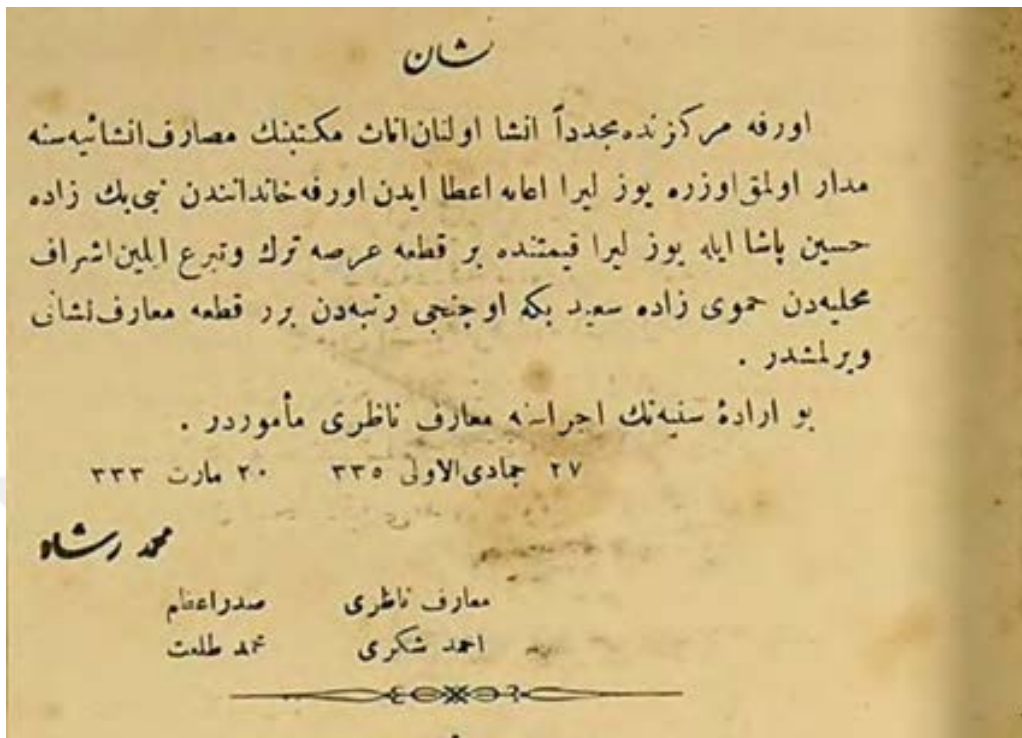 نشان
اورفه مركزنده مجدداً انشا اولنان اناث مكتبنك مصارف انشائيه‌سنه
مدار اولمق اوزره يوز ليرا اعانه اعطا ايدن اورفه خاندانندن نبی بك زاده
حسين پاشا ايله يوز ليرا قيمتنده بر قطعه عرصه ترك وتبرع ايلين اشراف
محليه‌دن حموی زاده سعيد بكه اوچنجی رتبه‌دن برر قطعه معارف نشانی
ويرلمشدر .
بو ارادهٔ سنيه‌نك اجراسنه معارف ناظری مأموردر .
٢٧ جمادی الاولی ٣٣٥ ٢٠ مارت ٣٣٣
محمد رشاد
معارف ناظری صدراعظم
احمد شكری محمد طلعت